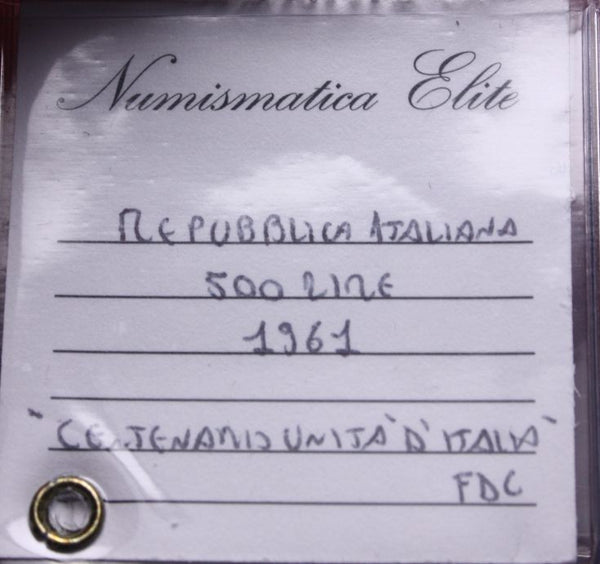 Numismatica Elite
REPUBBLICA ITALIANA
500 LIRE
1961
"CENTENARIO UNITÀ D'ITALIA"
FDC